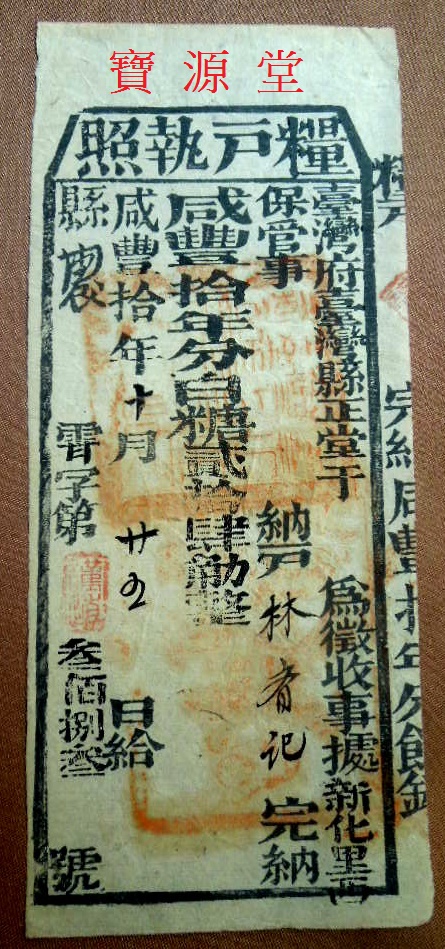 寶源堂
糧戶執照
臺灣府臺灣縣正堂于 為徵收事據新化里西
保管事 納戶林有記完納
咸豐拾年分白糖貳拾肆觔整
咸豐拾年十月廿五日給
縣
霄字第叁佰捌叁號
完納咸豐拾年分餉